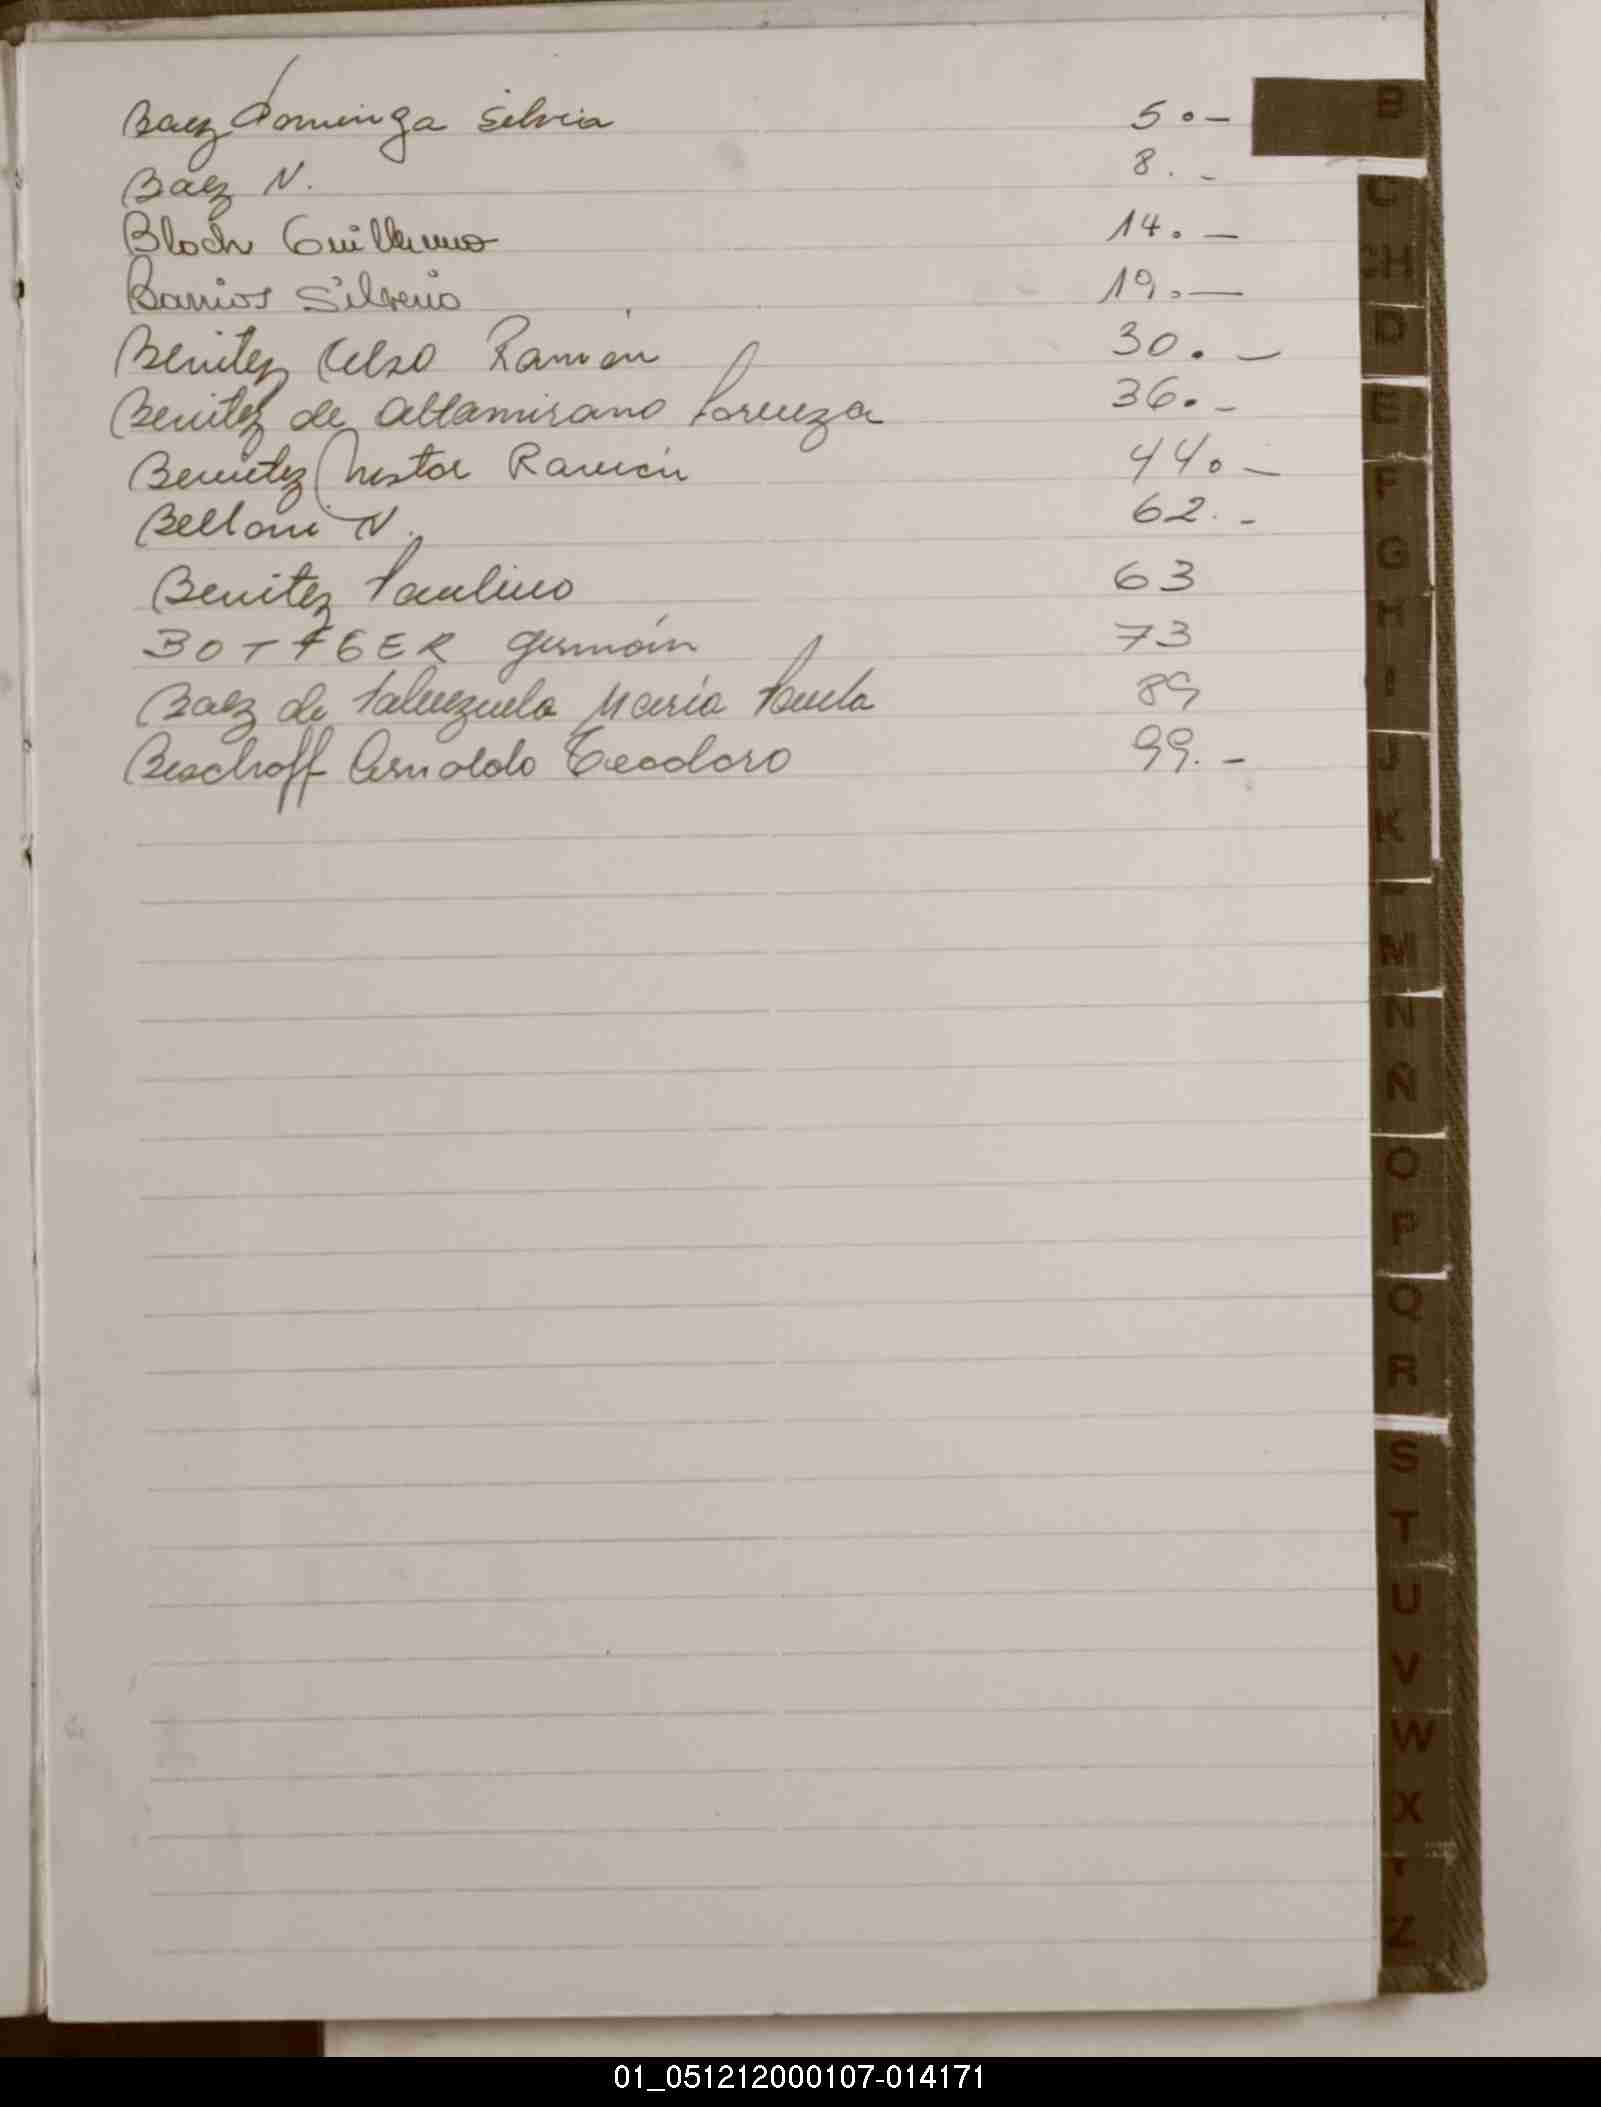 Baez Dominga Silvia 5.-
Baez N. 8.-
Bloch Guillermo 14.-
Barrios Silverio 19.-
Benitez Celso Ramón 30.-
Benitez de Altamirano Lorenza 36.-
Benitez Nestor Ramón 44.-
Belloni N. 62.-
Benitez Paulino 63
BOTTGER Germán 73
Baez de Valenzuela María Paula 89
Bischoff Arnoldo Teodoro 99.-
B
C
CH
D
E
F
G
H
I
J
K
M
N
Ñ
O
P
Q
R
S
T
U
V
W
X
Z
01_051212000107-014171